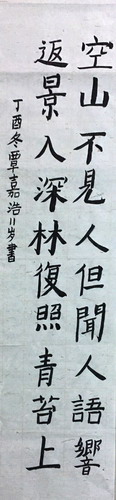 空山不見人但聞人語響
返景入深林復照青苔上
丁酉冬覃嘉浩11岁書